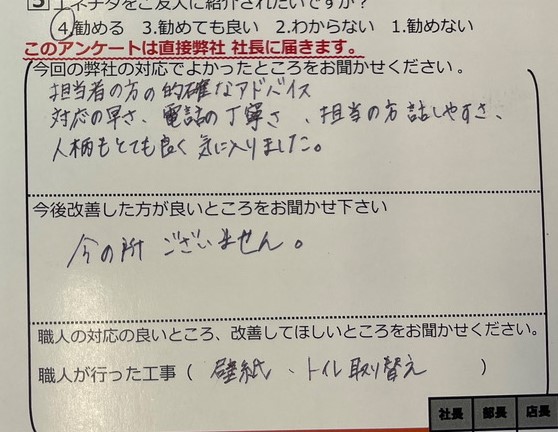 5 エネチタをご友人に紹介されたいですか？
4.勧める 3.勧めても良い 2.わからない 1.勧めない
このアンケートは直接弊社 社長に届きます。
今回の弊社の対応でよかったところをお聞かせください。
担当者の方の的確なアドバイス
対応の早さ、電話の丁寧さ、担当の方話しやすさ、
人柄もとても良く気に入りました。
今後改善した方が良いところをお聞かせ下さい
今の所ございません。
職人の対応の良いところ、改善してほしいところをお聞かせください。
職人が行った工事（ 壁紙、トイレ取り替え ）
社長 部長 店長